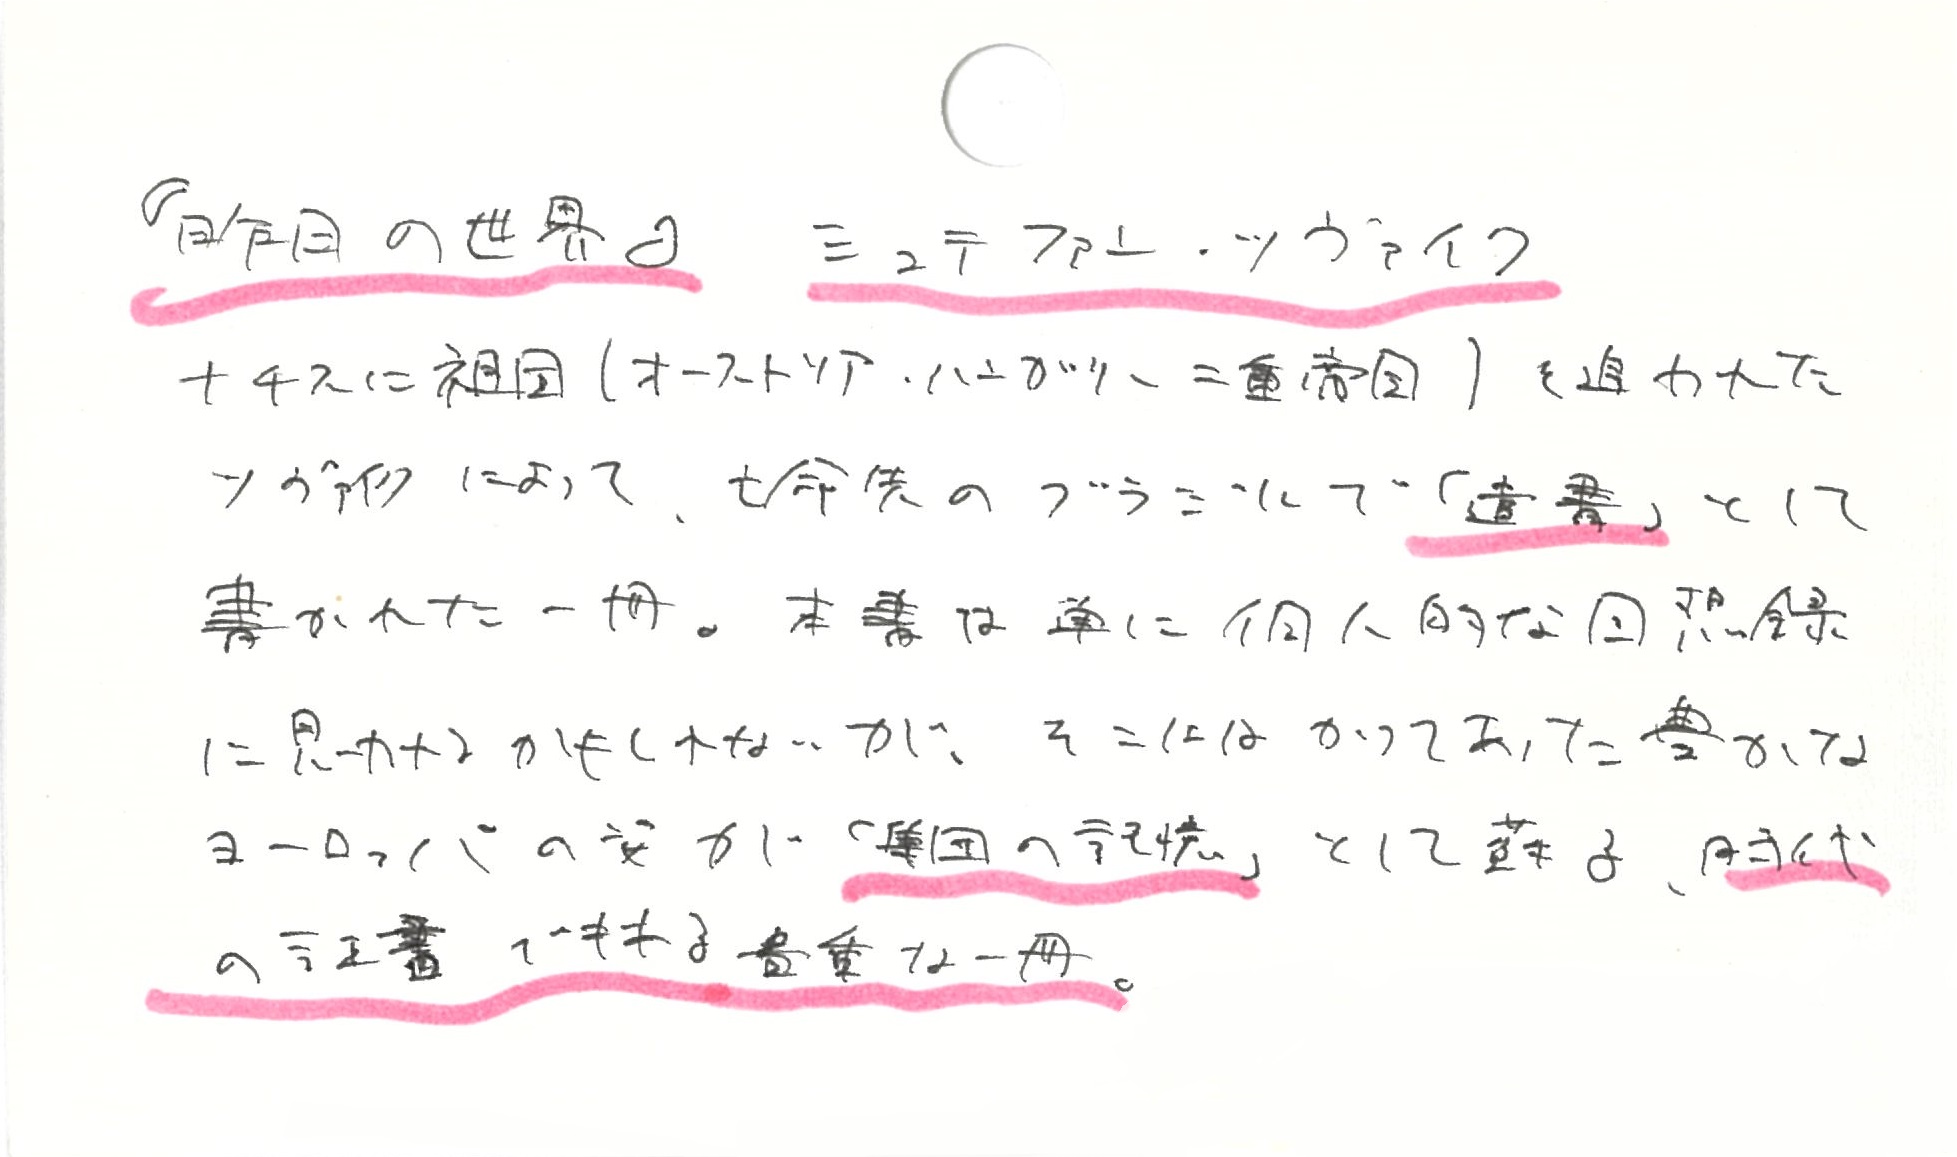 『昨日の世界』 シュテファン・ツヴァイク
ナチスに祖国(オーストリア・ハンガリー二重帝国)を追われた
ツヴァイクによって、亡命先のブラジルで「遺書」として
書かれた一冊。本書は単に個人的な回想録
に思われるかもしれないが、そこにはかつてあった豊かな
ヨーロッパの姿が「集団の記憶」として蘇る、時代
の証書でもある貴重な一冊。